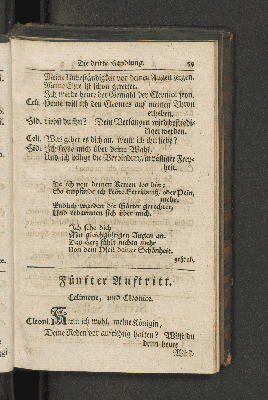 Die dritte Handlung. 59
Meine Unbeständigkeit vor deinen Augen zeigen.
Meine Ehre ist schon gerettet.
Ich werde heute der Gemahl der Cleonice seyn.
Celi. Heute will ich den Cleontes auf meinen Thron
erheben.
Liebst du ihn? Dein Verlangen wird befriediget werden.
Celi. Was gehet es dich an, wenn ich ihn liebe?
Ich freue mich über deine Wahl,
Und ich billige die Verbindung in völliger Freyheit.
Da ich von deinen Ketten los bin;
So empfinde ich keine Betrübniß, der Pein,
mehr.
Endlich wurden die Götter gerechter,
Und erbarmten sich über mich.
Ich sehe dich
Mit gleichgültigen Augen an.
Das Herz fühlt nichts mehr
Von dem Pfeil deiner Schönheit.
geht ab.
Fünfter Auftritt.
Celimene, und Cleonice.
Cleoni. Kann ich wohl, meine Königin,
Deine Reden vor aufrichtig halten? Willst du
denn heute